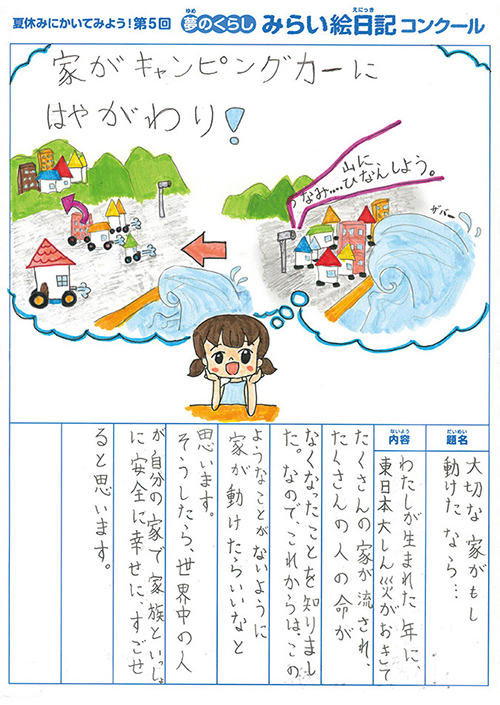 夏休みにかいてみよう！第5回 夢のくらし みらい絵日記コンクール
ゆめ
えにっき
家がキャンピングカーに
はやがわり！
つなみ....山に
ひなんしよう。
ザバー
だいめい
題名
大切な家がもし
動けたなら…
ないよう
内容
わたしが生まれた年に、
東日本大しん災がおきて
たくさんの家が流され、
たくさんの人の命が
なくなったことを知りまし
た。なので、これからは、この
ようなことがないように
家が動けたらいいなと
思います。
そうしたら、世界中の人
が自分の家で家族といっしょ
に安全に幸せに、すごせ
ると思います。